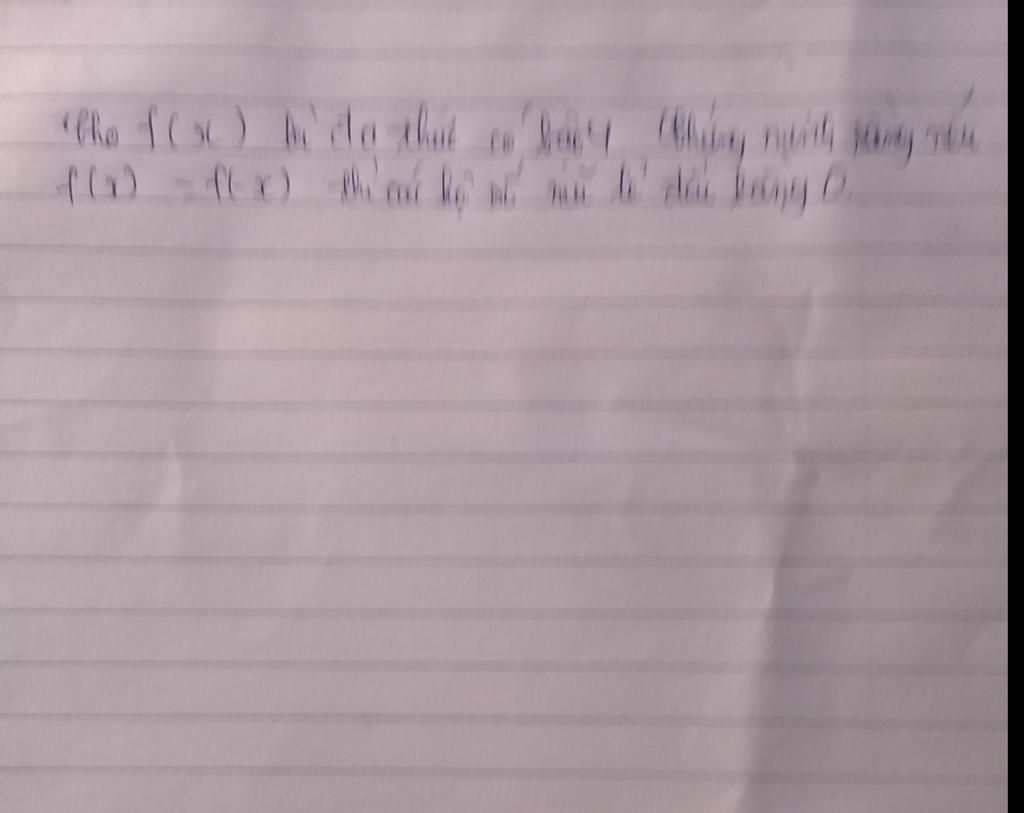 Cho f(x) là đa thức có bậc 4 Chứng minh rằng nếu
f(x) = f(-x) thì các hệ số mũ lẻ đều bằng 0.